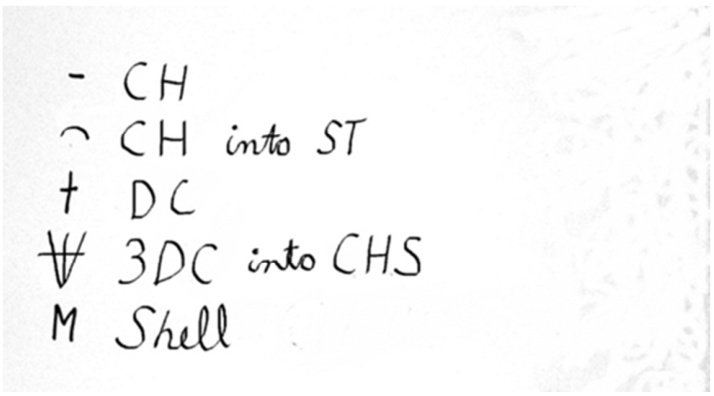 - CH
⌒ CH into ST
† DC
3DC into CHS
M Shell